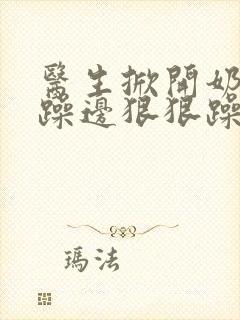 醫生掀開奶
躁邊狠狠躁
瑪法